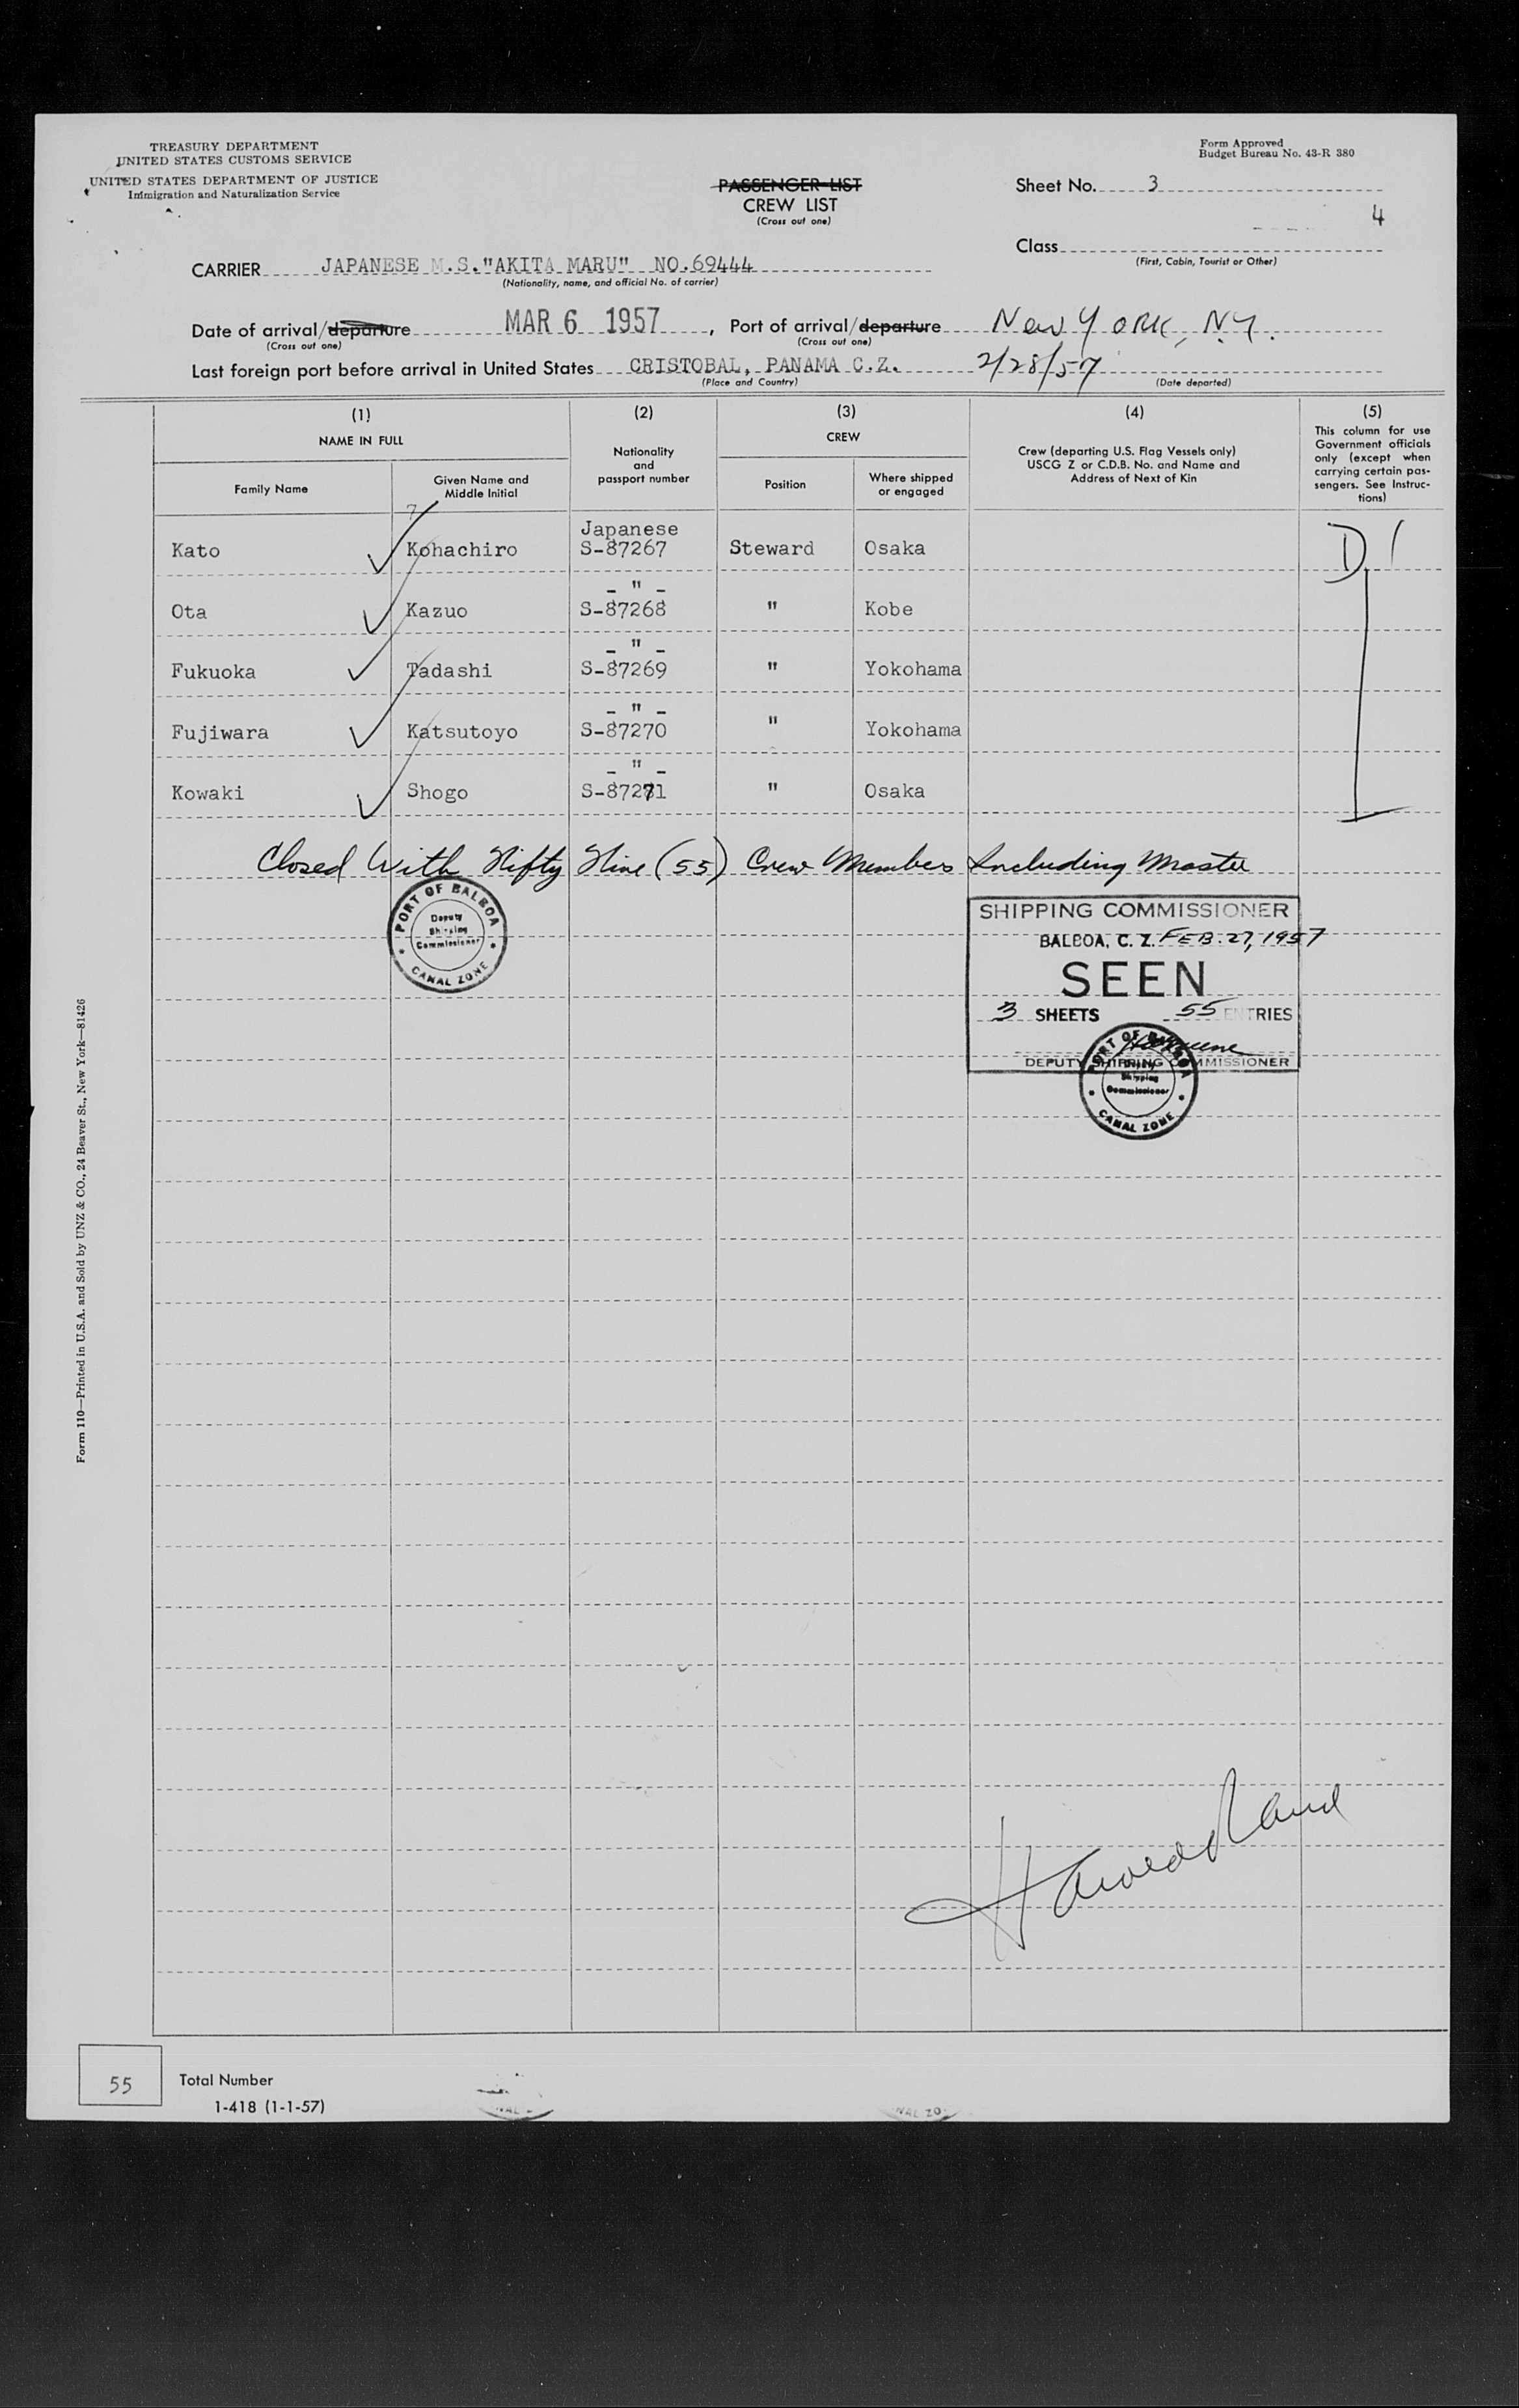 TREASURY DEPARTMENT
UNITED STATES CUSTOMS SERVICE
UNITED STATES DEPARTMENT OF JUSTICE
Immigration and Naturalization Service
Form Approved
Budget Bureau No. 43-R 380
PASSENGER LIST
CREW LIST
(Cross out one)
Sheet No. 3
4
Class
(First, Cabin, Tourist or Other)
CARRIER JAPANESE M.S."AKITA MARU" NO.69444
(Nationality, name, and official No. of carrier)
Date of arrival/departure MAR 6 1957, Port of arrival/departure New York, N.Y.
(Cross out one) (Cross out one)
Last foreign port before arrival in United States CRISTOBAL, PANAMA C.Z. 2/28/57
(Place and Country) (Date departed)
(1) (2) (3) (4) (5)
NAME IN FULL
Family Name
Given Name and
Middle Initial
Nationality
and
passport number
CREW
Position
Where shipped
or engaged
Crew (departing U.S. Flag Vessels only)
USCG Z or C.D.B. No. and Name and
Address of Next of Kin
This column for use
Government officials
only (except when
carrying certain pas-
sengers. See Instruc-
tions)
Japanese
Kato Kohachiro S-87267 Steward Osaka D 1
- " -
Ota Kazuo S-87268 " Kobe
- " -
Fukuoka Tadashi S-87269 " Yokohama
- " -
Fujiwara Katsutoyo S-87270 " Yokohama
- " -
Kowaki Shogo S-87271 " Osaka
Closed With Fifty Five (55) Crew Members Including Master
PORT OF BALBOA
Deputy
Shipping
Commissioner
CANAL ZONE
SHIPPING COMMISSIONER
BALBOA, C. Z. FEB. 27, 1957
SEEN
3 SHEETS 55 ENTRIES
DEPUTY SHIPPING COMMISSIONER
PORT OF BALBOA
Deputy
Shipping
Commissioner
CANAL ZONE
Form 110—Printed in U.S.A. and Sold by UNZ & CO., 24 Beaver St., New York—81426
55
Total Number
1-418 (1-1-57)